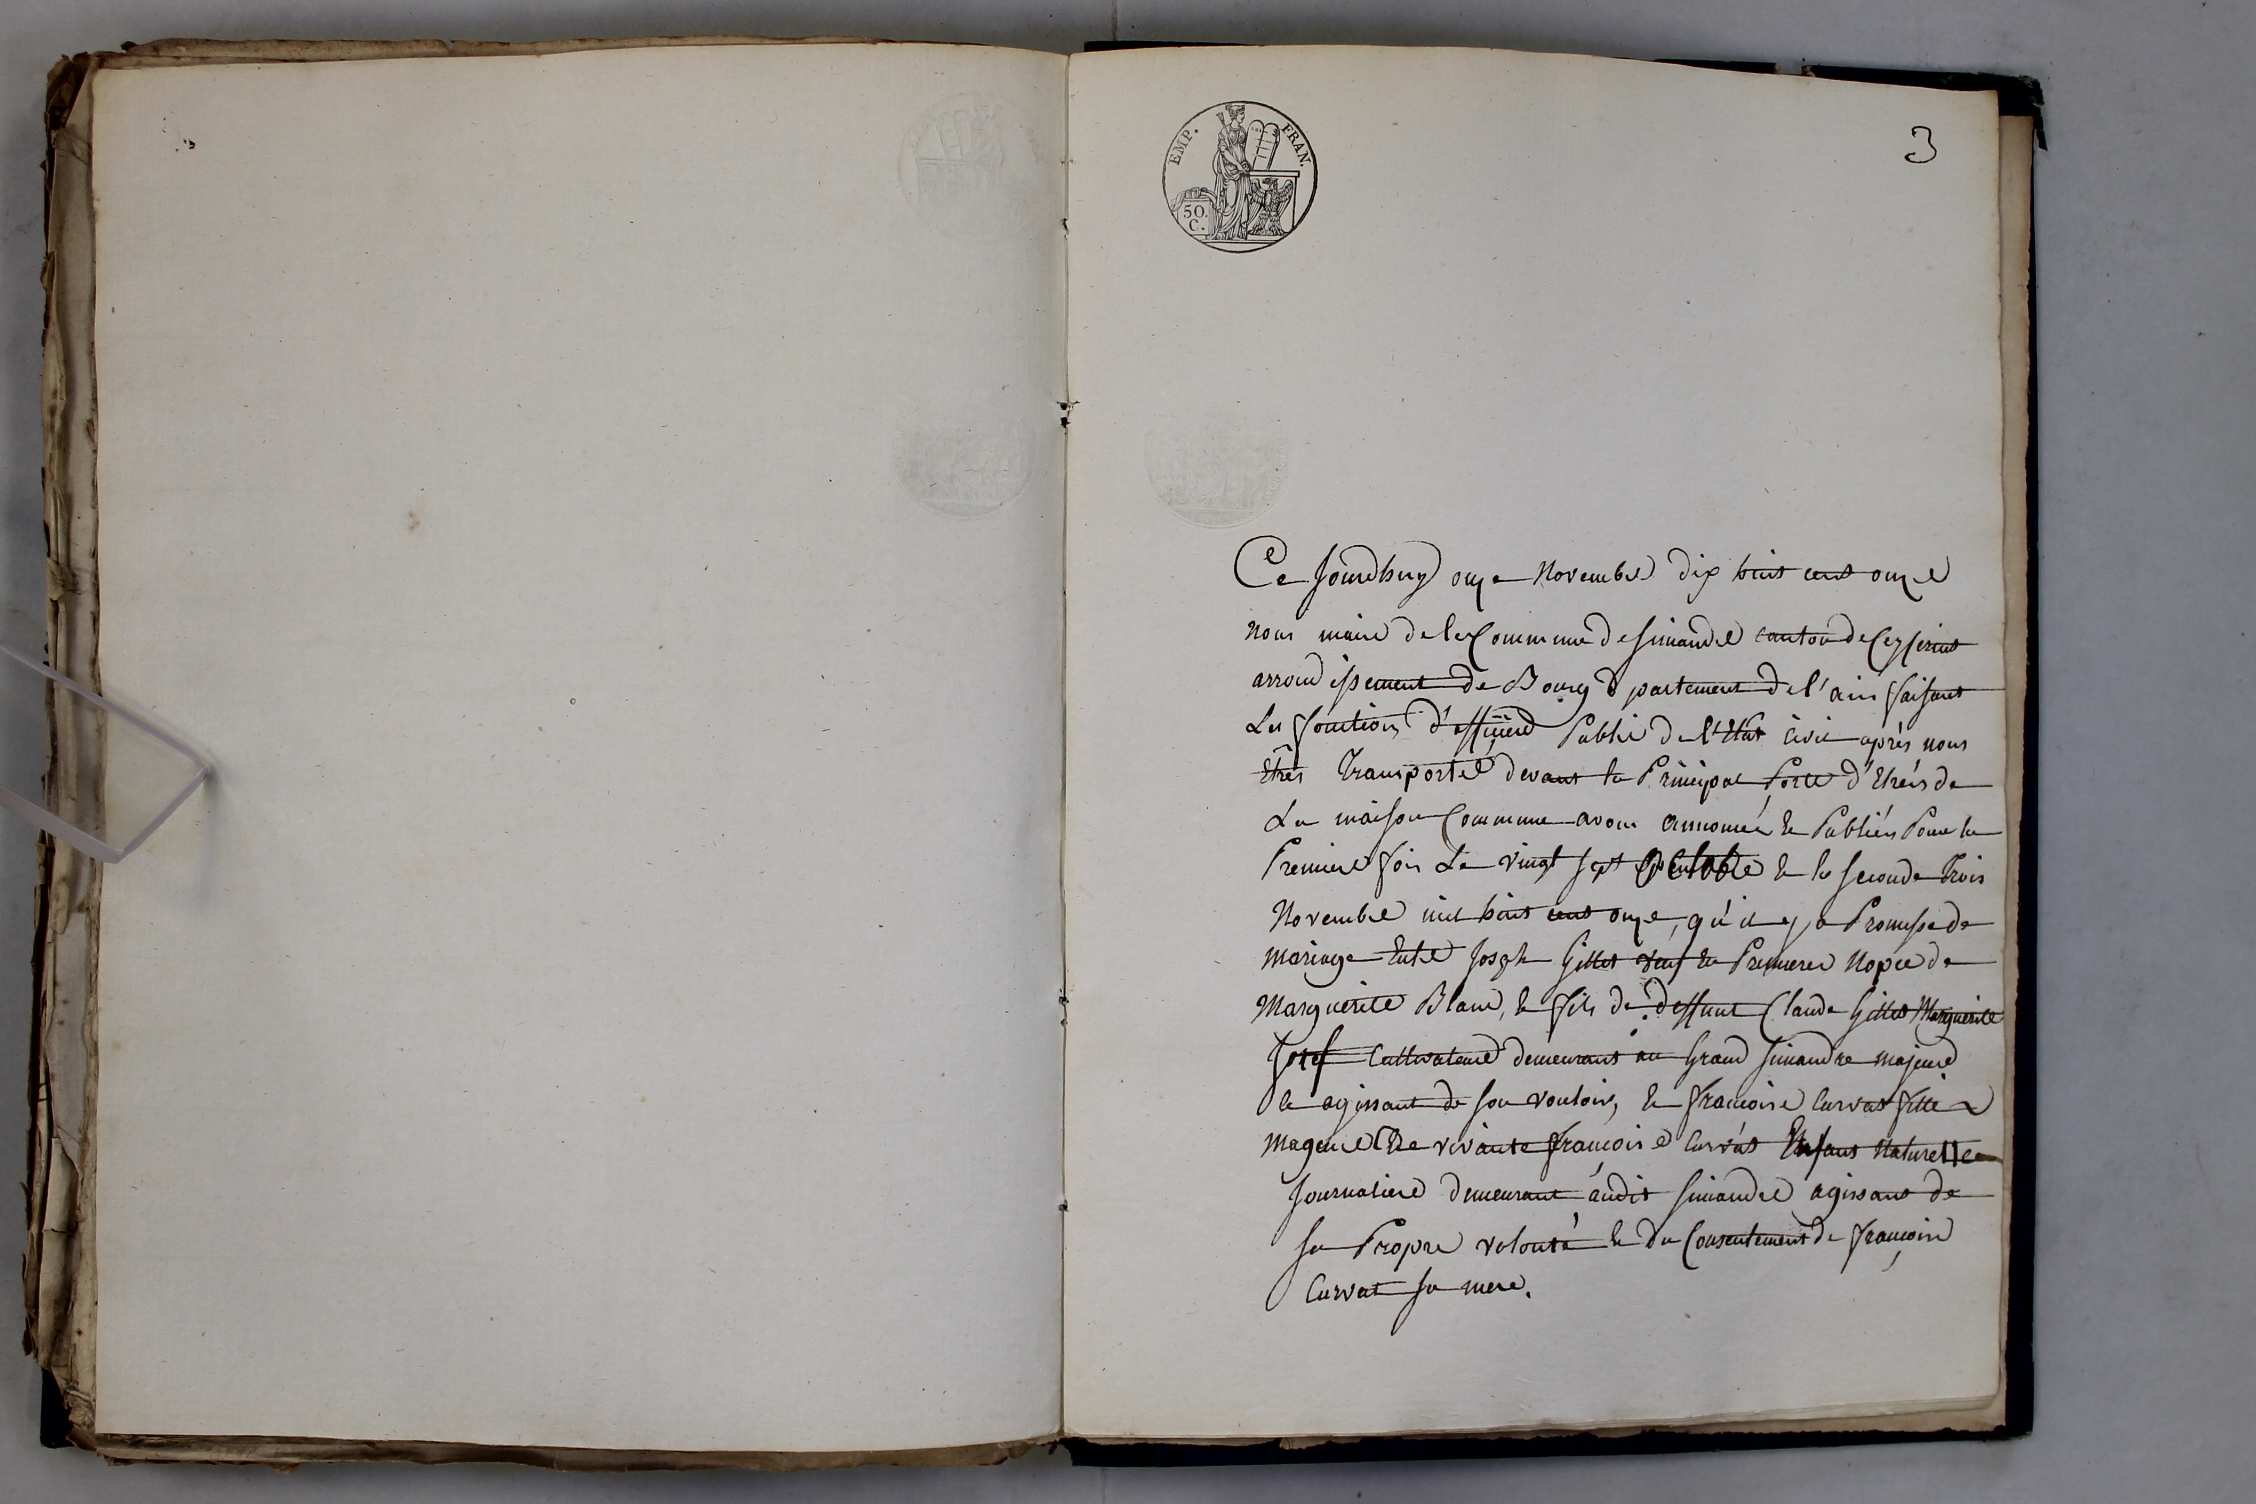 EMP. FRAN.
50.
C.
3
Ce Jourdhuy onze Novembre dix huit cent onze
nous maire de la Commune de simandre canton de Ceyseriat
arrondissement de Bourg dpartement de l'ain faisant
Les fonction d'officiere Public de l'Etat civil après nous
Etres Transporté devant la Principal Porte d'Etréis de
La maison Commune avons annoncé & Publiés Pour la
Premiere fois Le vingt sept octobre & la seconde Trois
Novembre mil huit cent onze, qu'il y a Promesse de
mariage Entre Joseph Gillet veuf En Premieres Nopce de
Marguerite Blanc, & fils de deffunt Claude Gillet Marguerite
Cultivateur demeurant au Grand simandre majeure
& agissant de son vouloir, & francoise Curvat fille
mageure De vivante francoise Curvat Enfant Naturelle
Journaliere demeurant audit simandre agissant de
sa Propre volonté & du Consentement de francoise
Curvat sa mere.